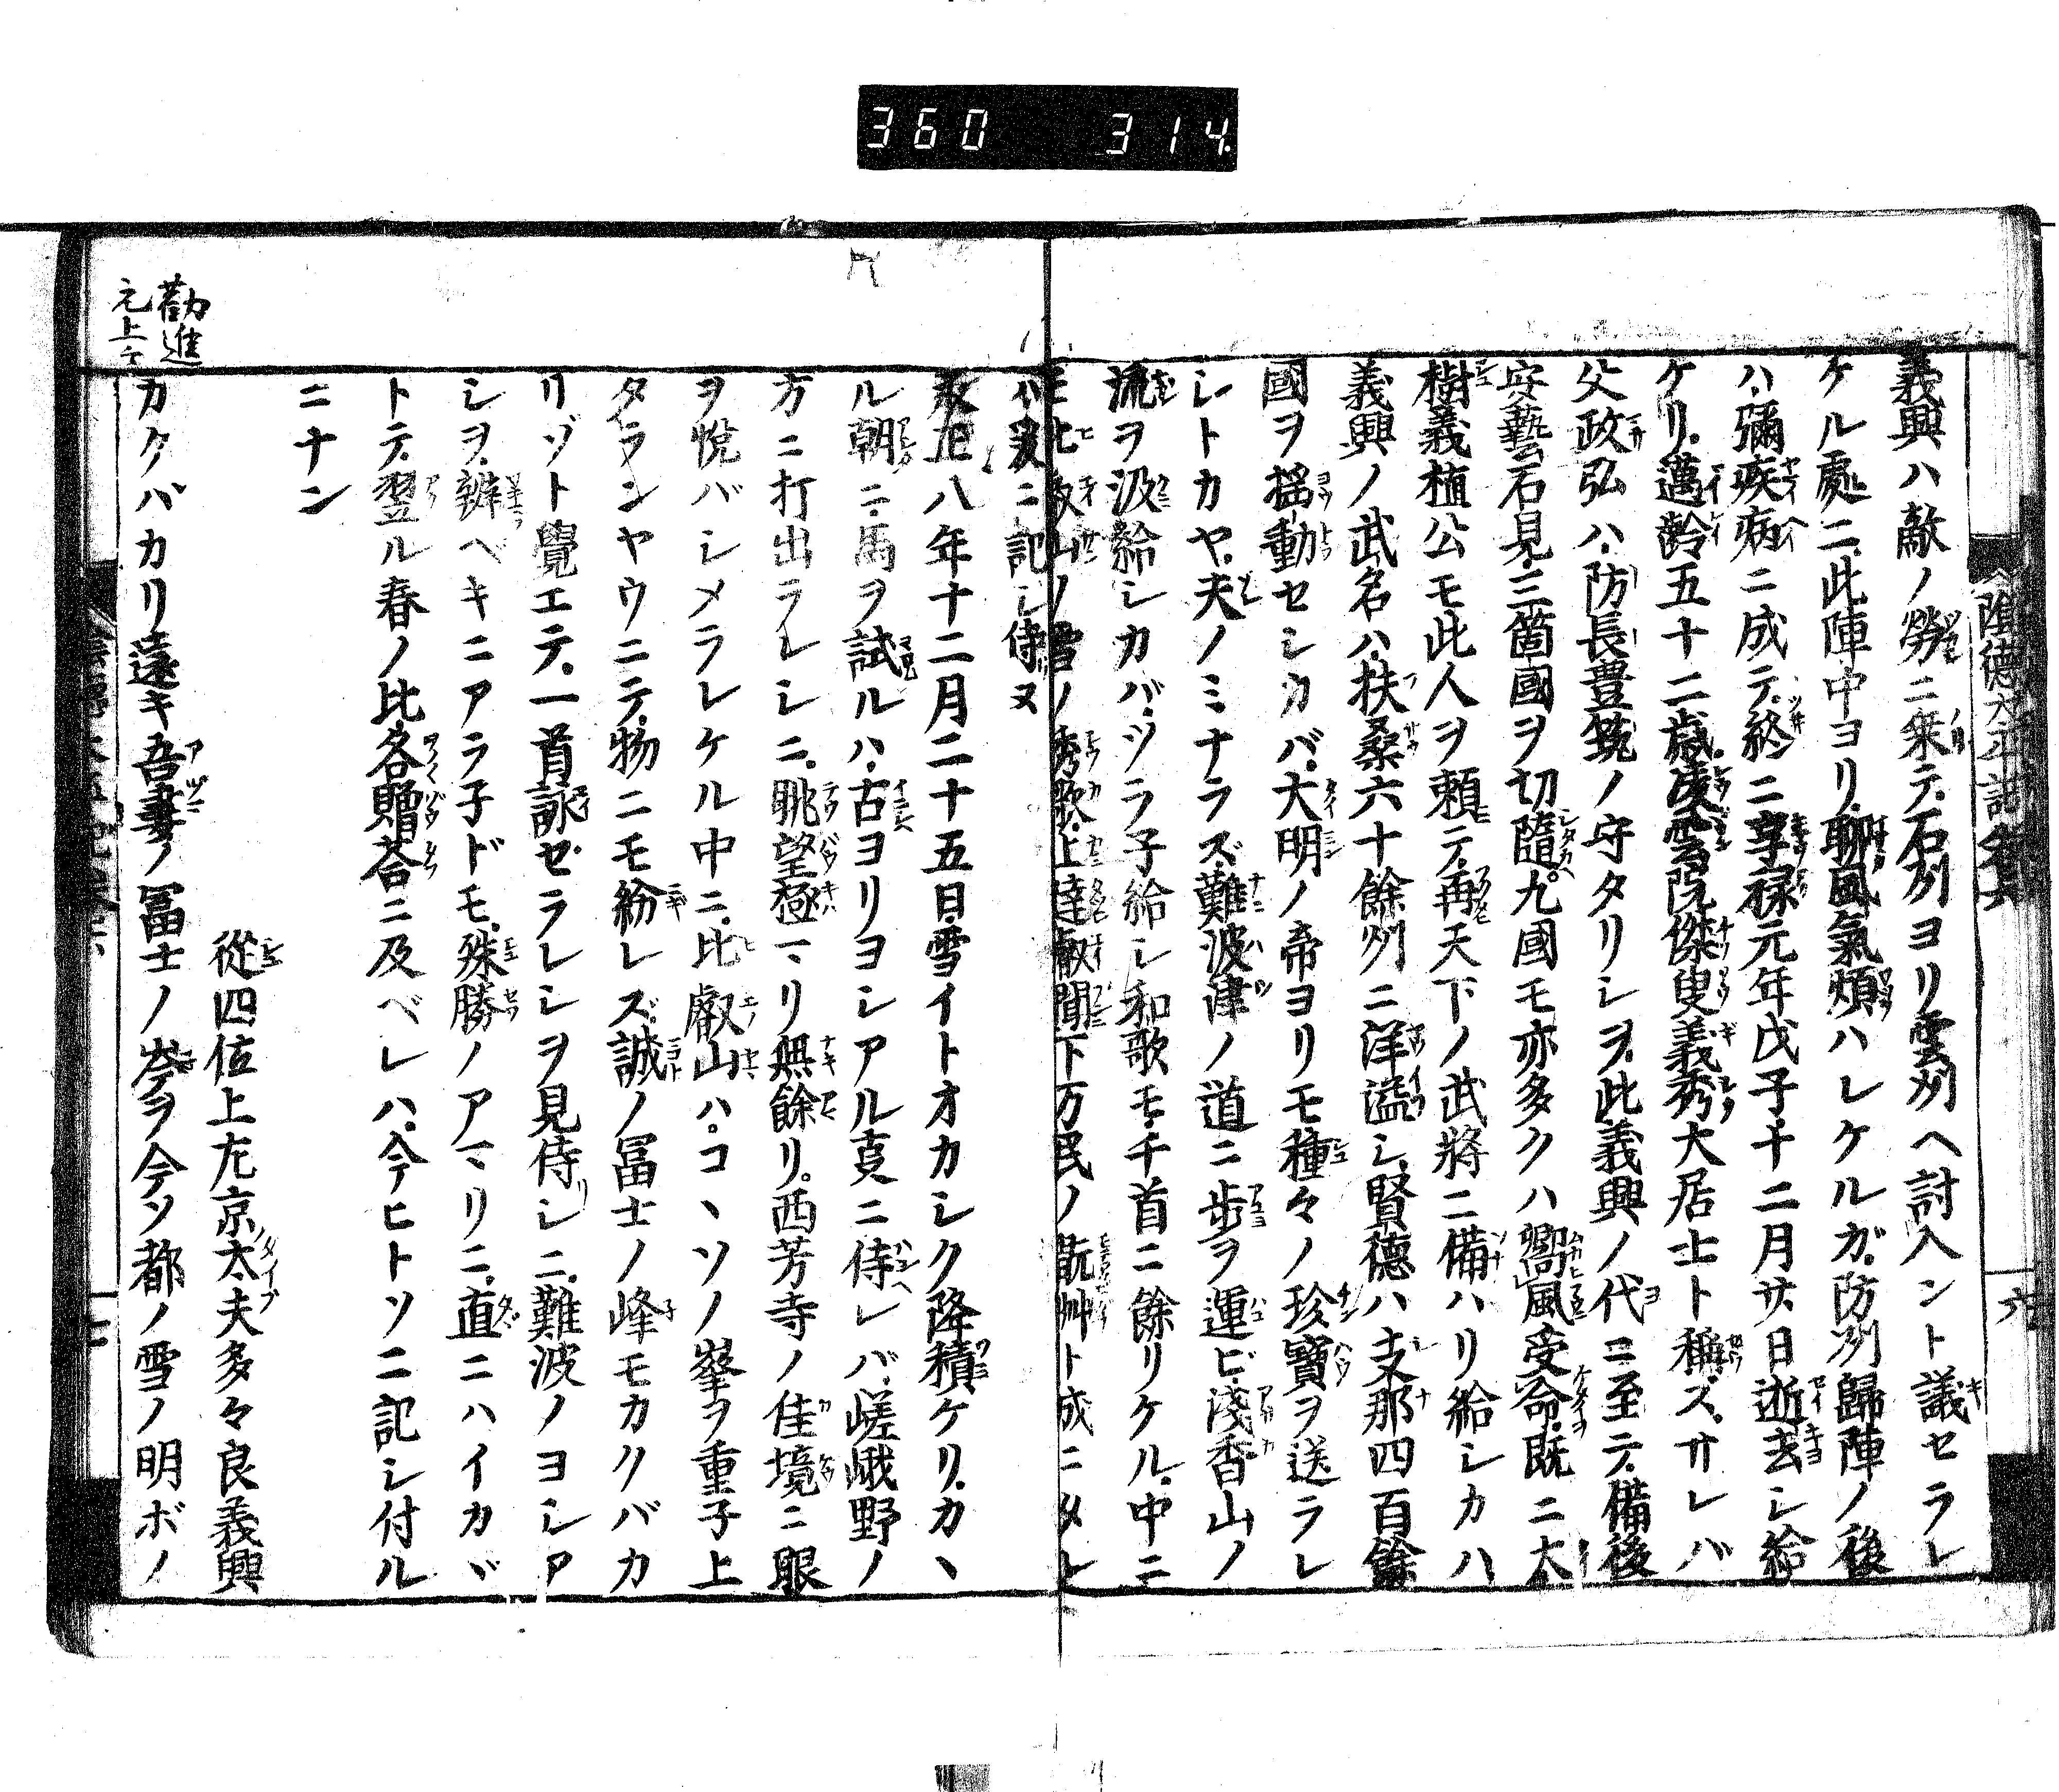 360 314
義興ハ敵ノ勞ニ乗テ石州ヨリ雲州ヘ討入ント議セラレ
ケル處ニ此陣中ヨリ聊風氣煩ハレケルガ防州歸陣ノ後
ハ彌疾病ニ成テ終ニ享禄元年戊子十二月廿日逝去シ給
ケリ邁齢五十二歳凌雲院傑叟義秀大居士ト稱ズサレバ
父政弘ハ防長豊筑ノ守タリシヲ此義興ノ代ニ至テ備後
安藝石見三箇國ヲ切隨九國モ亦多クハ嚮風受命既ニ大
樹義植公モ此人ヲ頼テ再天下ノ武將ニ備ハリ給シカハ
義興ノ武名ハ扶桑六十餘州ニ洋溢シ賢德ハ支那四百餘
國ヲ揺動セシカバ大明ノ帝ヨリモ種々ノ珍寶ヲ送ラレ
シトカヤ夫ノミナラズ難波津ノ道ニ歩ヲ運ビ淺香山ノ
流ヲ汲給シカバツラ子給シ和歌モ千首ニ餘リケル中ニ
モ比叡山ノ雪ノ秀歌上達叡聞下万民ノ翫艸ト成ニタレ
バ爰ニ記シ侍ヌ
永正八年十二月二十五日雪イトオカシク降積ケリカヽ
ル朝ニ馬ヲ試ルハ古ヨリヨシアル叓ニ侍レバ嵯峨野ノ
方ニ打出ラレシニ眺望極マリ無餘リ西芳寺ノ佳境ニ眼
ヲ悅バシメラレケル中ニ比叡山ハコヽソノ峯ヲ重子上
タランヤウニテ物ニモ紛レズ誠ノ冨士ノ峰モカクバカ
リゾト覺エテ一首詠ゼラレシヲ見侍リシニ難波ノヨシア
シヲ辨ヘキニアラ子ドモ殊勝ノアマリニ直ニハイカヾ
トテ翌ル春ノ比各贈荅ニ及ベレハ今ヒトツニ記シ付ル
ニナン
從四位上左京太夫多々良義興
カクバカリ遠キ吾妻ノ冨士ノ岺ヲ今ソ都ノ雪ノ明ボノ
勸進
元上ケ
陰德太平記卷六
六
七